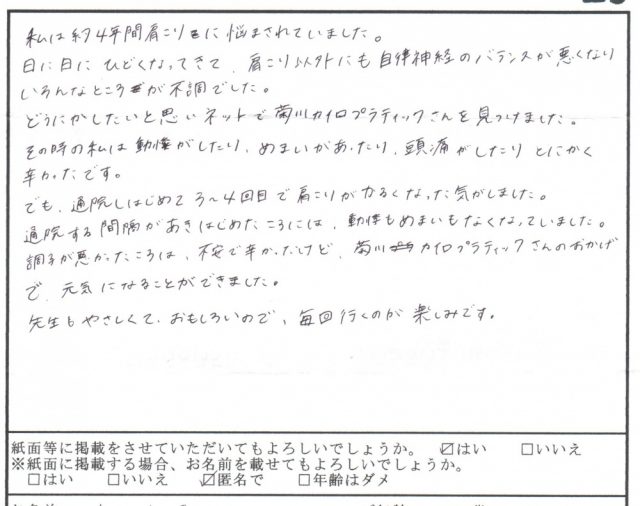 私は約4年間肩こりに悩まされていました。
日に日にひどくなってきて、肩こり以外にも自律神経のバランスが悪くなり
いろんなところが不調でした。
どうにかしたいと思いネットで菊川カイロプラティックさんを見つけました。
その時の私は動悸がしたり、めまいがあったり、頭痛がしたりとにかく
辛かったです。
でも、通院しはじめて3〜4回目で肩こりがかるくなった気がしました。
通院する間隔があきはじめたころには、動悸もめまいもなくなっていました。
調子が悪かったころは、不安で辛かったけど、菊川カイロプラティックさんのおかげ
で、元気になることができました。
先生もやさしくて、おもしろいので、毎回行くのが楽しみです。
紙面等に掲載をさせていただいてもよろしいでしょうか。 ☑はい □いいえ
※紙面に掲載する場合、お名前を載せてもよろしいでしょうか。
□はい □いいえ ☑匿名で □年齢はダメ